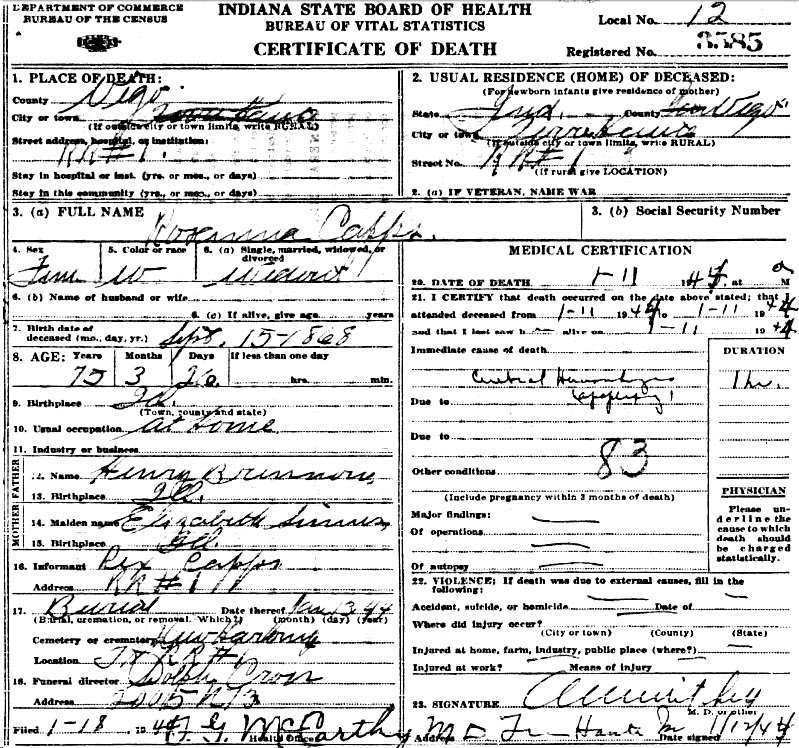 DEPARTMENT OF COMMERCE
BUREAU OF THE CENSUS
INDIANA STATE BOARD OF HEALTH
BUREAU OF VITAL STATISTICS
CERTIFICATE OF DEATH
Local No. 12
Registered No. 3585
1. PLACE OF DEATH:
County Vigo
City or town
(If outside city or town limits, write RURAL)
Street address, hospital, or institution:
RR#1.
Stay in hospital or inst. (yrs., or mos., or days)
Stay in this community (yrs., or mos., or days)
2. USUAL RESIDENCE (HOME) OF DECEASED:
(For newborn infants give residence of mother)
State Ind. County Vigo
City or town Terre Haute
(If outside city or town limits, write RURAL)
Street No. RR#1
(If rural give LOCATION)
2. (a) IF VETERAN, NAME WAR
3. (a) FULL NAME Rosanna Capps.
3. (b) Social Security Number
4. Sex Fem
5. Color or race W
6. (a) Single, married, widowed, or divorced Widow
6. (b) Name of husband or wife
6. (c) If alive, give age years
7. Birth date of deceased (mo., day, yr.) Sept. 15-1868
8. AGE: Years 75 Months 3 Days 26 If less than one day hrs. min.
9. Birthplace
(Town, county and state)
10. Usual occupation at Home
11. Industry or business
FATHER
12. Name Henry
13. Birthplace
MOTHER
14. Maiden name Elizabeth
15. Birthplace
16. Informant Rex Capps
Address RR#1
17. Burial Date thereof Jan 13 44
(Burial, cremation, or removal. Which?) (month) (day) (year)
Cemetery or crematory New Harmony
Location T.H. RR#1
18. Funeral director Dolph Cross
Address 2005 N 13
Filed 1-18 1944 McCarthy
Health Officer
MEDICAL CERTIFICATION
20. DATE OF DEATH 1-11 1944 at M
21. I CERTIFY that death occurred on the date above stated; that I
attended deceased from 1-11 1944 to 1-11 1944
and that I last saw h alive on 1-11 1944
Immediate cause of death
DURATION
Cerebral Hemorrhage 1 hr.
Due to (apoplexy)
Due to
83
Other conditions
(Include pregnancy within 3 months of death)
Major findings:
Of operations
Of autopsy
PHYSICIAN
Please underline the cause to which death should be charged statistically.
22. VIOLENCE: If death was due to external causes, fill in the following:
Accident, suicide, or homicide Date of
Where did injury occur?
(City or town) (County) (State)
Injured at home, farm, industry, public place (where?)
Injured at work? Means of injury
23. SIGNATURE
M. D. or other
Address Date signed 1/12/44